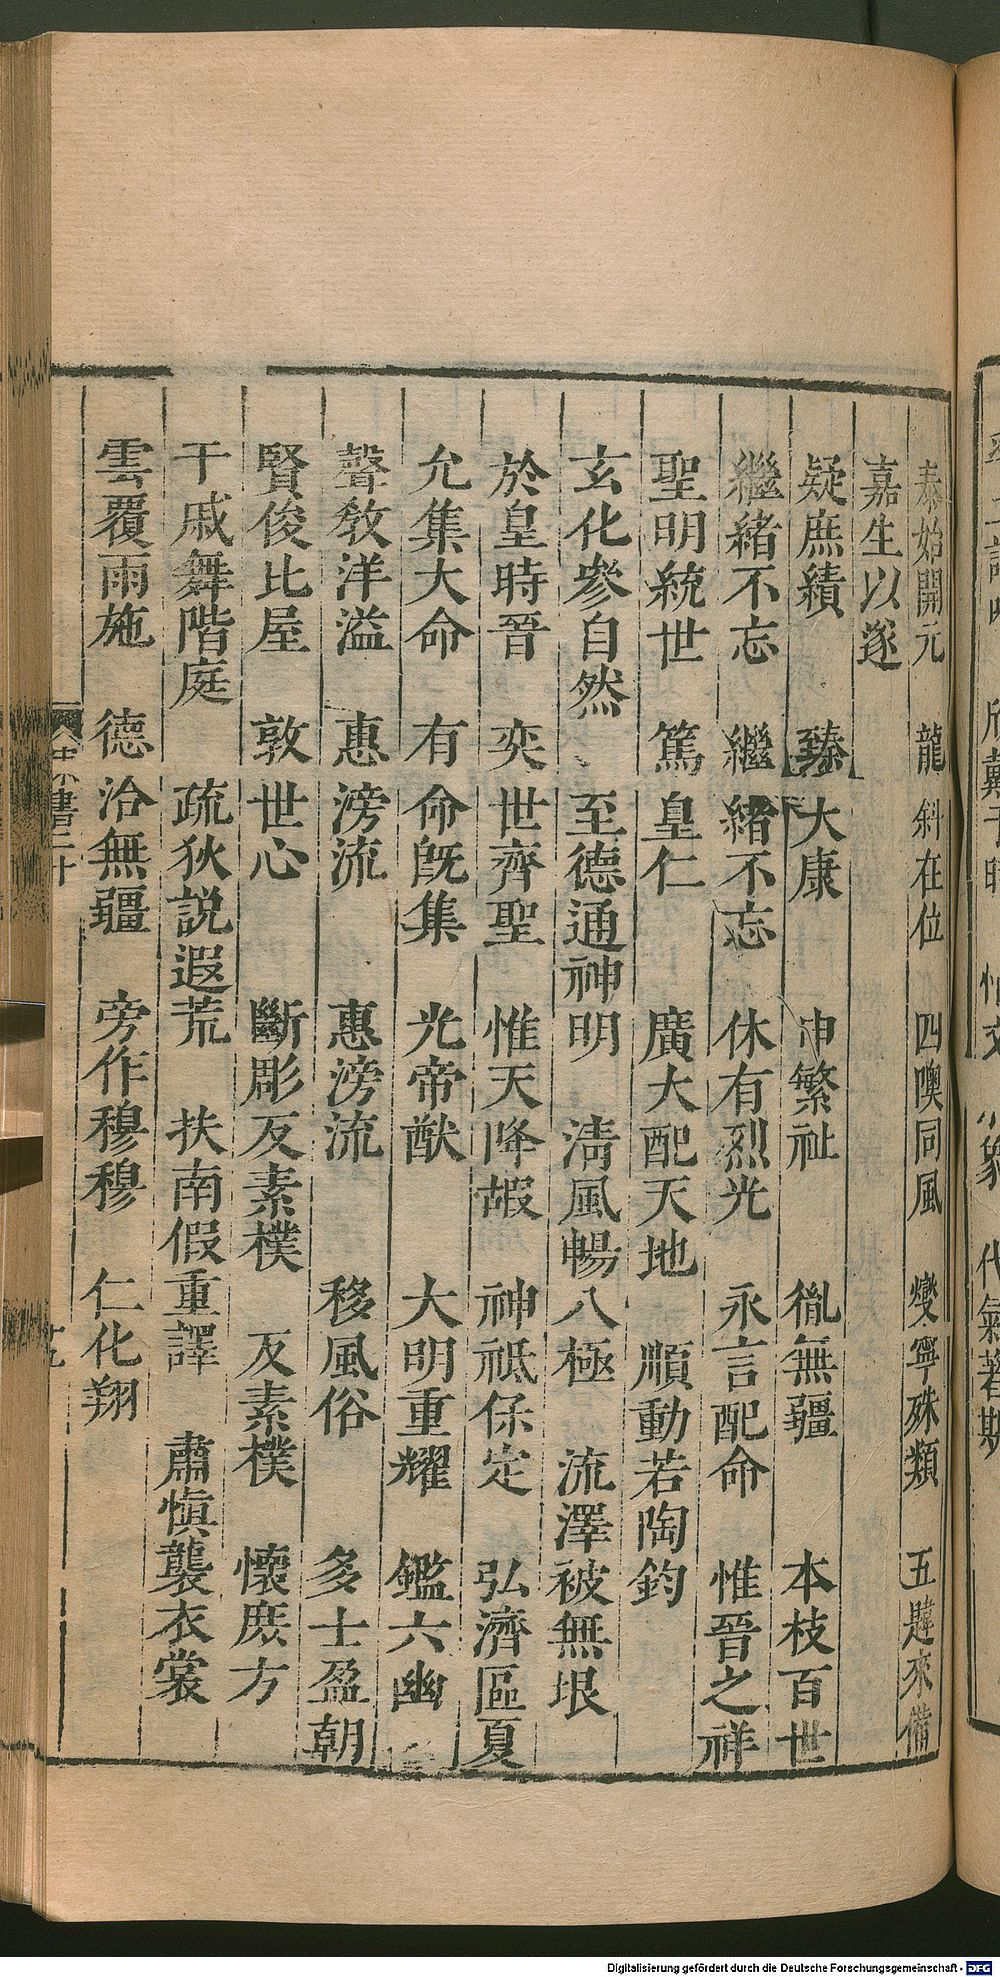 泰始開元　龍斜在位　四噢同風　燮寧殊類　五韙來備
嘉生以遂
疑庶績　臻大康　申繁祉　胤無疆　本枝百世
繼緒不忘　繼緒不忘　休有烈光　永言配命　惟晉之祥
聖明統世　篤皇仁　廣大配天地　順動若陶鈞
玄化參自然　至德通神明　淸風暢八極　流澤被無垠
於皇時晉　奕世齊聖　惟天降嘏　神祗保定　弘濟區夏
允集大命　有命旣集　光帝猷　大明重耀　鑑六幽
聲敎洋溢　惠滂流　惠滂流　移風俗　多士盈朝
賢俊比屋　敦世心　斷彫反素樸　反素樸　懷庶方
干戚舞階庭　疏狄説遐荒　扶南假重譯　肅愼襲衣裳
雲覆雨施　德洽無疆　旁作穆穆　仁化翔
宋書二十
Digitalisierung gefördert durch die Deutsche Forschungsgemeinschaft - DFG